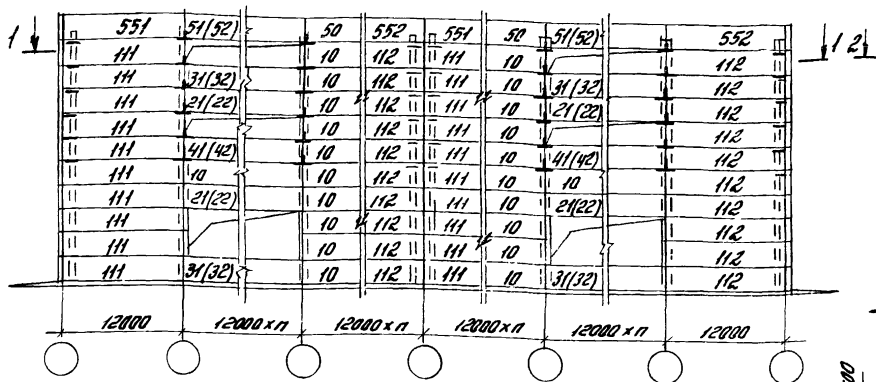 1 551 51(52) 50 552 551 50 51(52) 552 1 2
111 10 112 111 10 112
111 31(32) 10 112 111 10 31(32) 112
111 21(22) 10 112 111 10 21(22) 112
111 10 112 111 10 112
111 41(42) 10 112 111 10 41(42) 112
111 10 10 112 111 10 10 112
111 21(22) 10 112 111 10 21(22) 112
111 10 112 111 10 112
111 10 112 111 10 112
111 31(32) 10 112 111 10 31(32) 112
12000 12000×п 12000×п 12000×п 12000×п 12000